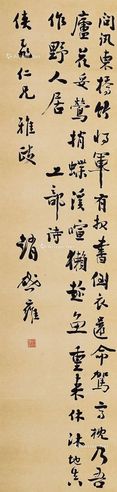 問訊東橋竹將軍有報書倒衣還命駕高枕乃吾
廬花妥鶯捎蝶溪喧獺趁魚重來休沐地真
作野人居 工部詩
俠飛仁兄雅政